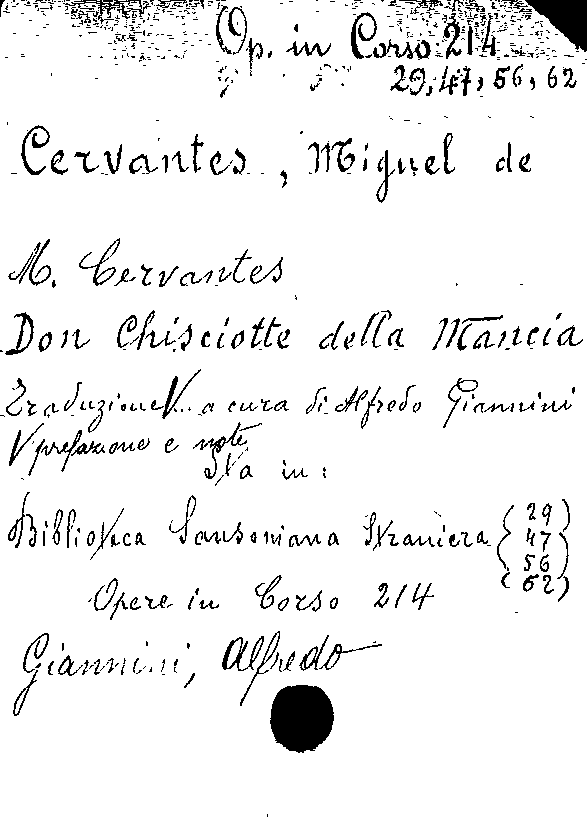 Op. in Corso 214
29, 47, 56, 62
Cervantes, Miguel de
M. Cervantes
Don Chisciotte della Mancia
Traduzione V.. a cura di Alfredo Giannini
V prefazione e note
Sta in:
Biblioteca Sansoniana Straniera { 29
47
56
62 }
Opere in Corso 214
Giannini, Alfredo